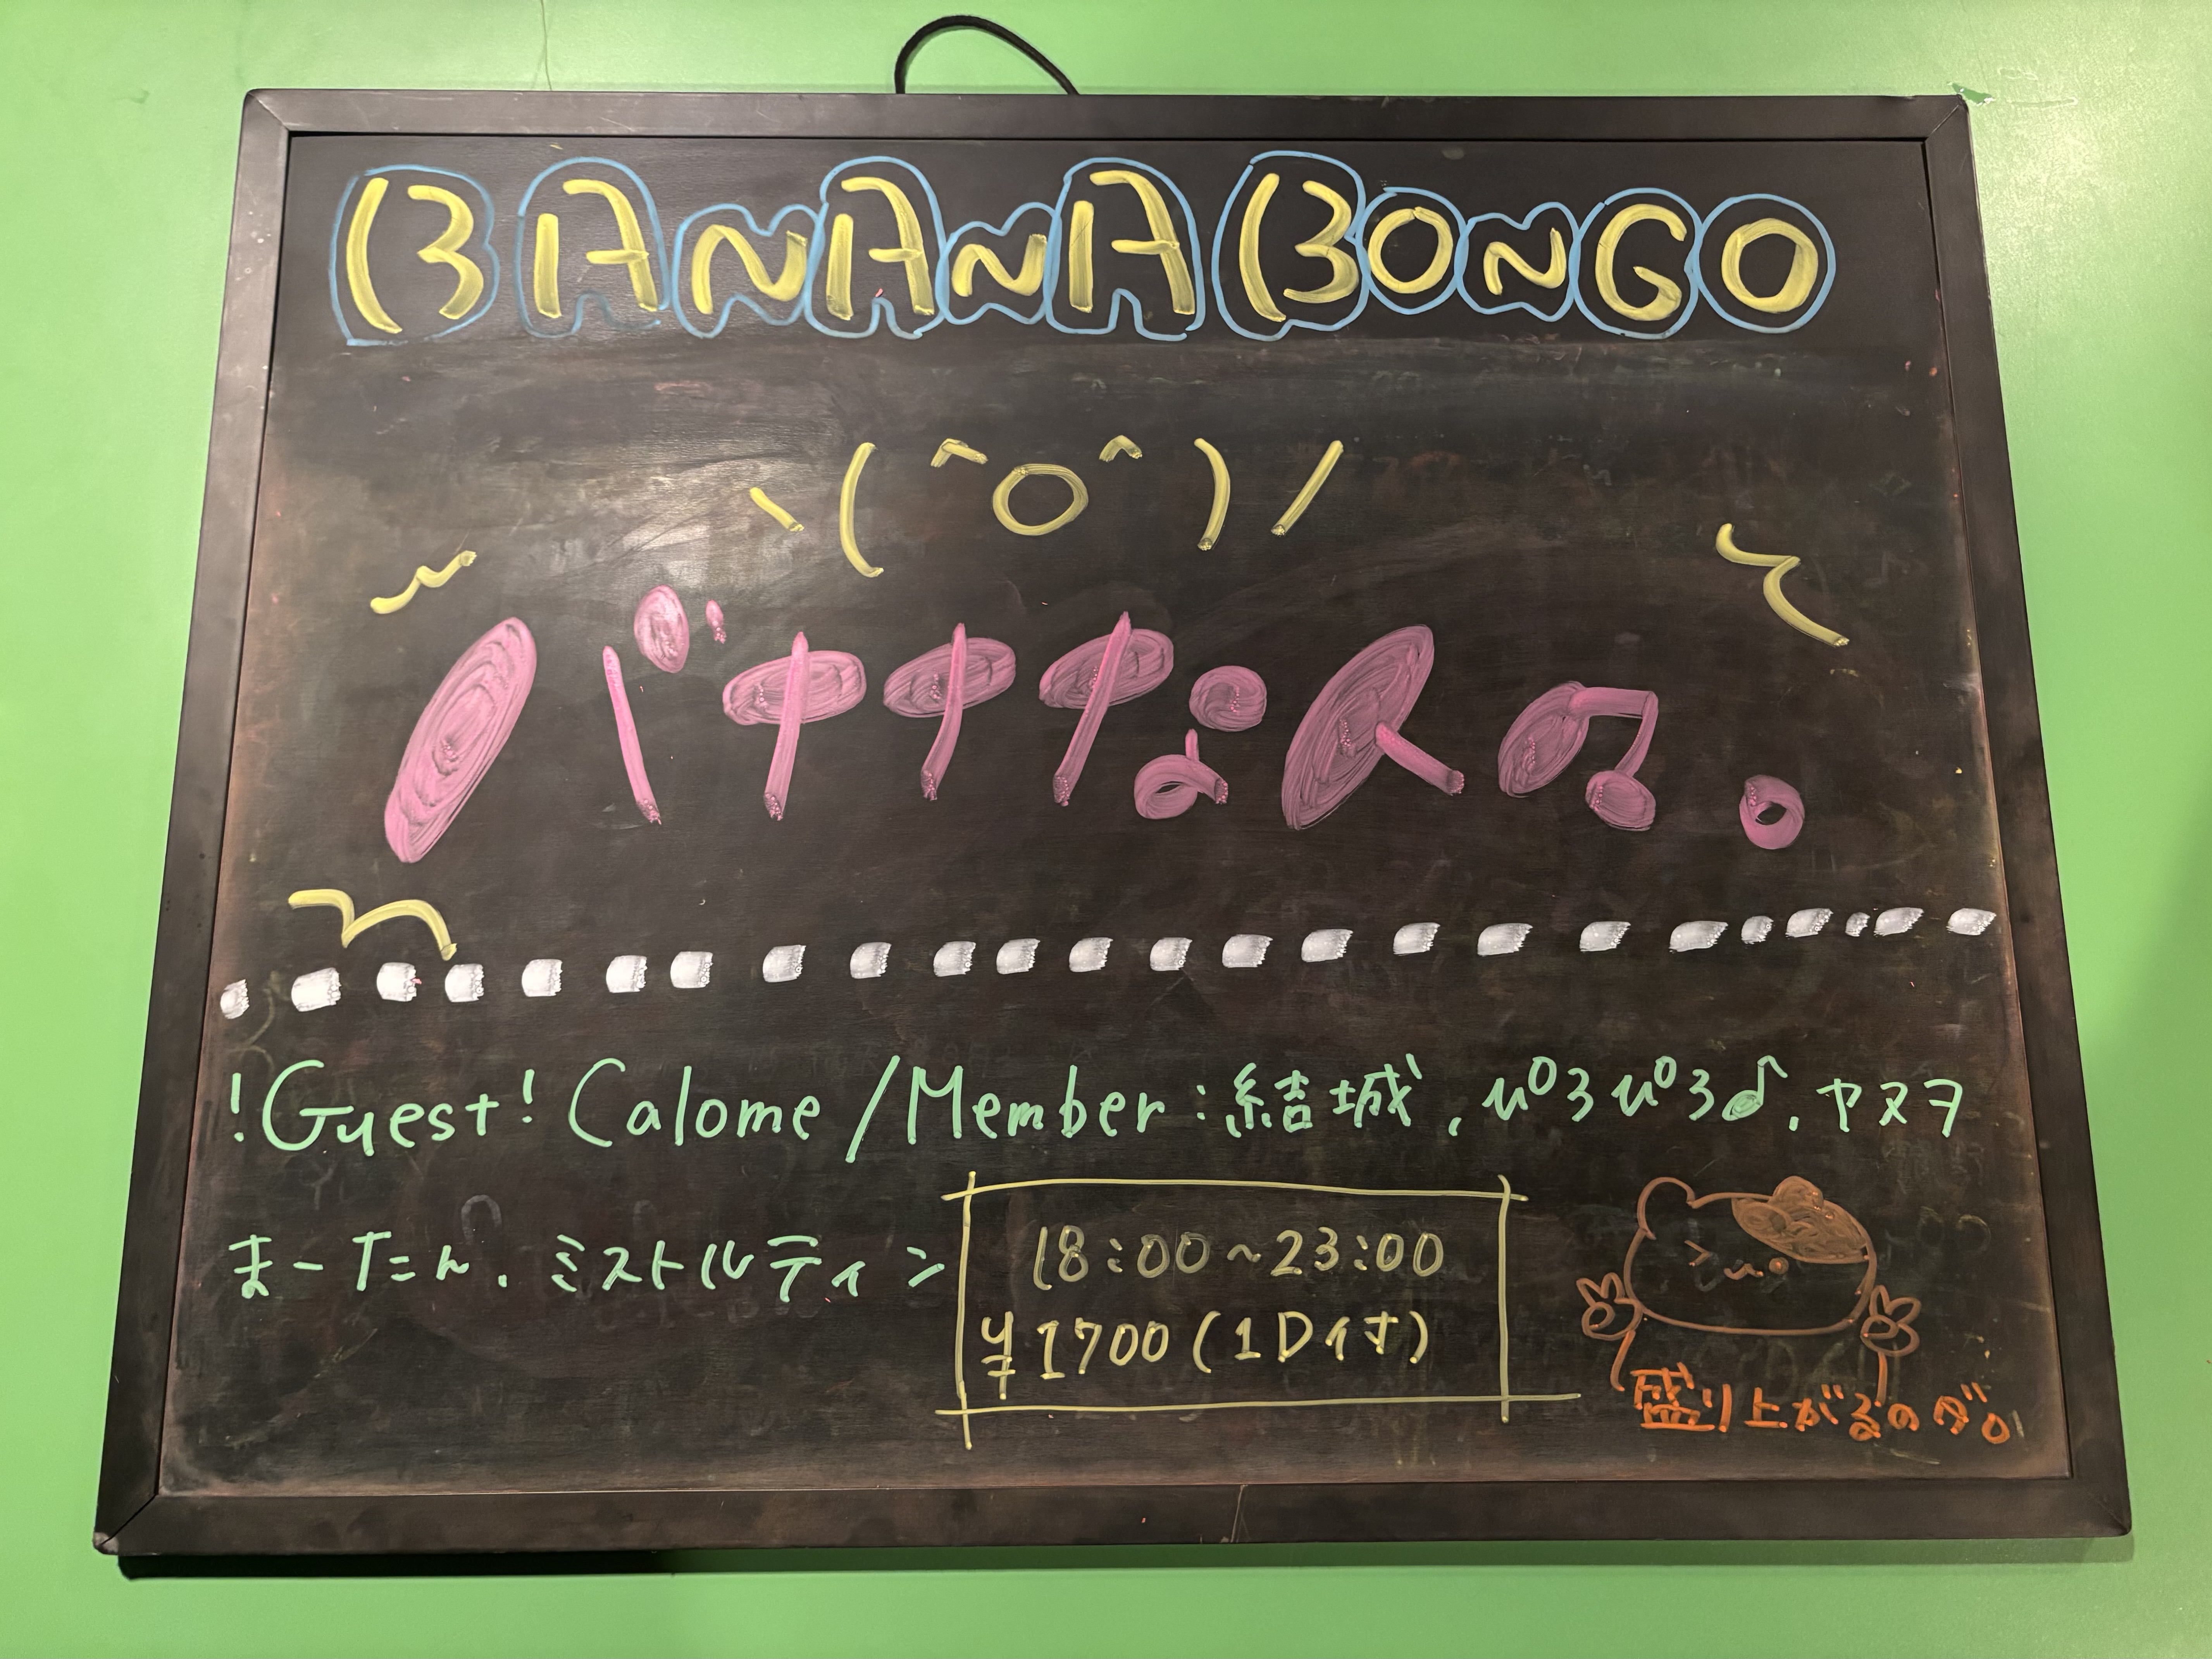 BANANA BONGO
\(^O^)/
バナナナな人々。
!Guest! Calome /Member:結城, ぃ゜ろぃ゜ろ♪, ヤヌヲ
まーたん, ミストルティン
18:00~23:00
¥1700(1D付)
盛り上がるのダ。